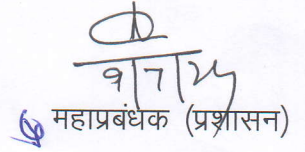 ९/7/25
महाप्रबंधक (प्रशासन)